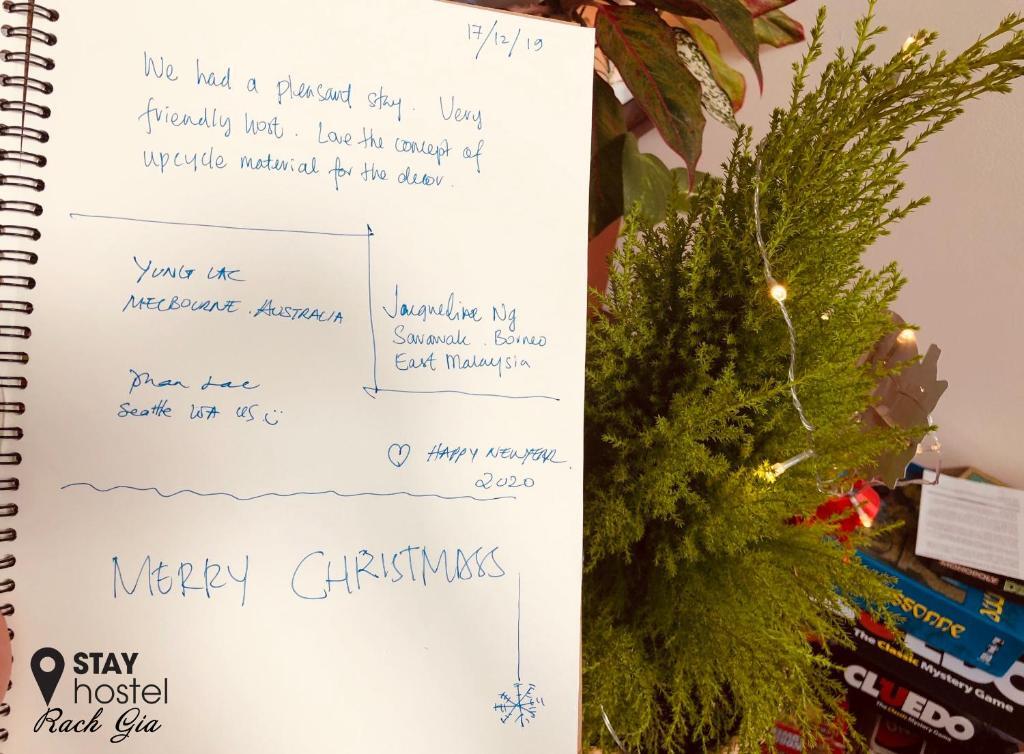 17/12/19
We had a pleasant stay. Very
friendly host. Love the concept of
upcycle material for the decor.
YUNG LAC
MELBOURNE. AUSTRALIA
Jacqueline Ng
Sarawak. Borneo
East Malaysia
Lac
Seattle WA US
♡ HAPPY NEW YEAR.
2020
MERRY CHRISTMASS
STAY
hostel
Rach Gia
The Classic Mystery Game
CLUEDO
The Classic Mystery Game